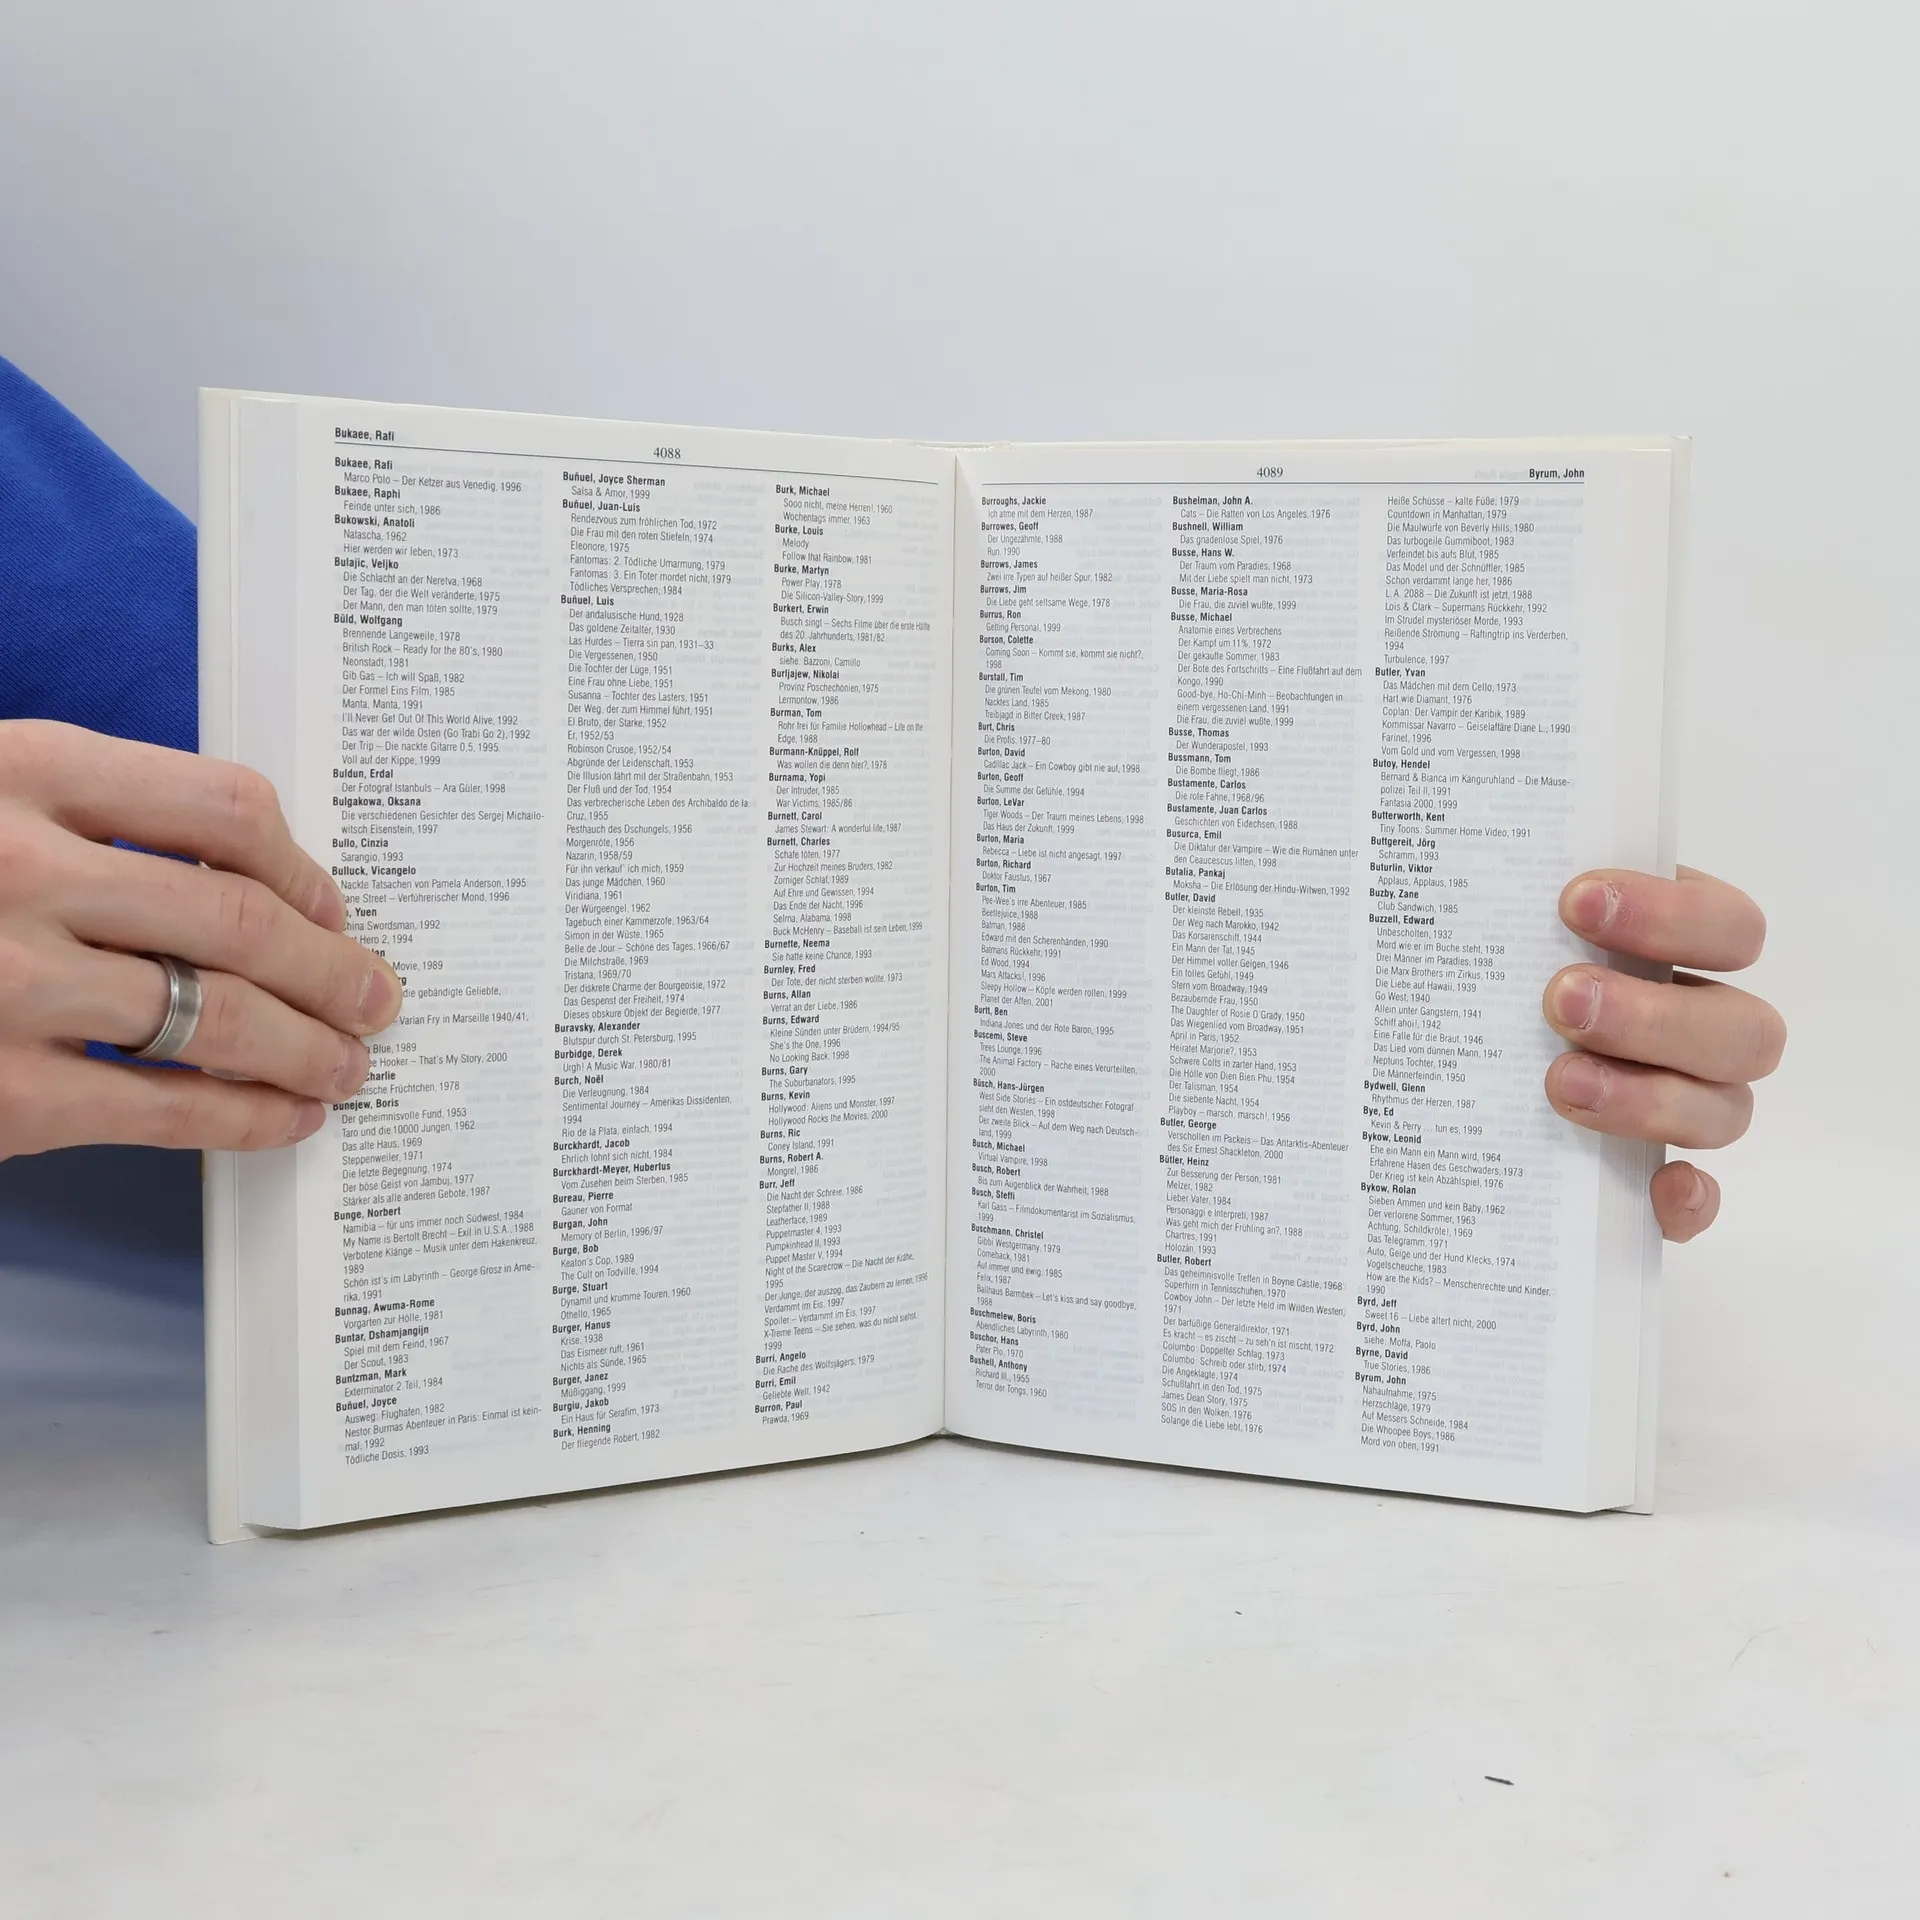 Bukaee, Rafi
4088
Bukaee, Rafi
Marco Polo – Der Ketzer aus Venedig, 1996
Bukaee, Raphi
Feinde unter sich, 1986
Bukowski, Anatoli
Natascha, 1962
Hier werden wir leben, 1973
Bulajic, Veljko
Die Schlacht an der Neretva, 1968
Der Tag, der die Welt veränderte, 1975
Der Mann, den man töten sollte, 1979
Büld, Wolfgang
Brennende Langeweile, 1978
British Rock – Ready for the 80's, 1980
Neonstadt, 1981
Gib Gas – Ich will Spaß, 1982
Der Formel Eins Film, 1985
Manta, Manta, 1991
I'll Never Get Out Of This World Alive, 1992
Das war der wilde Osten (Go Trabi Go 2), 1992
Der Trip – Die nackte Gitarre 0,5, 1995
Voll auf der Kippe, 1999
Buldun, Erdal
Der Fotograf Istanbuls – Ara Güler, 1998
Bulgakowa, Oksana
Die verschiedenen Gesichter des Sergej Michailo-
witsch Eisenstein, 1997
Bullo, Cinzia
Sarangio, 1993
Bulluck, Vicangelo
Nackte Tatsachen von Pamela Anderson, 1995
Street – Verführerischer Mond, 1996
Yuen
Swordsman, 1992
Hero 2, 1994
Movie, 1989
die gebändigte Geliebte,
– Varian Fry in Marseille 1940/41,
Blue, 1989
Hooker – That's My Story, 2000
Charlie
Früchtchen, 1978
Bunejew, Boris
Der geheimnisvolle Fund, 1953
Taro und die 10000 Jungen, 1962
Das alte Haus, 1969
Steppenweiler, 1971
Die letzte Begegnung, 1974
Der böse Geist von Jambuj, 1977
Stärker als alle anderen Gebote, 1987
Bunge, Norbert
Namibia – für uns immer noch Südwest, 1984
My Name is Bertolt Brecht – Exil in U.S.A., 1988
Verbotene Klänge – Musik unter dem Hakenkreuz,
1989
Schön ist's im Labyrinth – George Grosz in Ame-
rika, 1991
Bunnag, Awuma-Rome
Vorgarten zur Hölle, 1981
Buntar, Dshamjangijn
Spiel mit dem Feind, 1967
Der Scout, 1983
Buntzman, Mark
Exterminator 2.Teil, 1984
Buñuel, Joyce
Ausweg: Flughafen, 1982
Nestor Burmas Abenteuer in Paris: Einmal ist kein-
mal, 1992
Tödliche Dosis, 1993
Buñuel, Joyce Sherman
Salsa & Amor, 1999
Buñuel, Juan-Luis
Rendezvous zum fröhlichen Tod, 1972
Die Frau mit den roten Stiefeln, 1974
Eleonore, 1975
Fantomas: 2. Tödliche Umarmung, 1979
Fantomas: 3. Ein Toter mordet nicht, 1979
Tödliches Versprechen, 1984
Buñuel, Luis
Der andalusische Hund, 1928
Das goldene Zeitalter, 1930
Las Hurdes – Tierra sin pan, 1931–33
Die Vergessenen, 1950
Die Tochter der Lüge, 1951
Eine Frau ohne Liebe, 1951
Susanna – Tochter des Lasters, 1951
Der Weg, der zum Himmel führt, 1951
El Bruto, der Starke, 1952
Er, 1952/53
Robinson Crusoe, 1952/54
Abgründe der Leidenschaft, 1953
Die Illusion fährt mit der Straßenbahn, 1953
Der Fluß und der Tod, 1954
Das verbrecherische Leben des Archibaldo de la
Cruz, 1955
Pesthauch des Dschungels, 1956
Morgenröte, 1956
Nazarin, 1958/59
Für ihn verkauf' ich mich, 1959
Das junge Mädchen, 1960
Viridiana, 1961
Der Würgeengel, 1962
Tagebuch einer Kammerzofe, 1963/64
Simon in der Wüste, 1965
Belle de Jour – Schöne des Tages, 1966/67
Die Milchstraße, 1969
Tristana, 1969/70
Der diskrete Charme der Bourgeoisie, 1972
Das Gespenst der Freiheit, 1974
Dieses obskure Objekt der Begierde, 1977
Buravsky, Alexander
Blutspur durch St. Petersburg, 1995
Burbidge, Derek
Urgh! A Music War, 1980/81
Burch, Noël
Die Verleugnung, 1984
Sentimental Journey – Amerikas Dissidenten,
1994
Rio de la Plata, einfach, 1994
Burckhardt, Jacob
Ehrlich lohnt sich nicht, 1984
Burckhardt-Meyer, Hubertus
Vom Zusehen beim Sterben, 1985
Bureau, Pierre
Gauner von Format
Burgan, John
Memory of Berlin, 1996/97
Burge, Bob
Keaton's Cop, 1989
The Cult on Todville, 1994
Burge, Stuart
Dynamit und krumme Touren, 1960
Othello, 1965
Burger, Hanus
Krise, 1938
Das Eismeer ruft, 1961
Nichts als Sünde, 1965
Burger, Janez
Müßiggang, 1999
Burgiu, Jakob
Ein Haus für Serafim, 1973
Burk, Henning
Der fliegende Robert, 1982
Burk, Michael
Sooo nicht, meine Herren!, 1960
Wochentags immer, 1963
Burke, Louis
Melody
Follow that Rainbow, 1981
Burke, Martyn
Power Play, 1978
Die Silicon-Valley-Story, 1999
Burkert, Erwin
Busch singt – Sechs Filme über die erste Hälfte
des 20. Jahrhunderts, 1981/82
Burks, Alex
siehe: Bazzoni, Camillo
Burljajew, Nikolai
Provinz Poschechonien, 1975
Lermontow, 1986
Burman, Tom
Rohr frei für Familie Hollowhead – Life on the
Edge, 1988
Burmann-Knüppel, Rolf
Was wollen die denn hier?, 1978
Burnama, Yopi
Der Intruder, 1985
War Victims, 1985/86
Burnett, Carol
James Stewart: A wonderful life, 1987
Burnett, Charles
Schafe töten, 1977
Zur Hochzeit meines Bruders, 1982
Zorniger Schlaf, 1989
Auf Ehre und Gewissen, 1994
Das Ende der Nacht, 1996
Selma, Alabama, 1998
Buck McHenry – Baseball ist sein Leben, 1999
Burnette, Neema
Sie hatte keine Chance, 1993
Burnley, Fred
Der Tote, der nicht sterben wollte, 1973
Burns, Allan
Verrat an der Liebe, 1986
Burns, Edward
Kleine Sünden unter Brüdern, 1994/95
She's the One, 1996
No Looking Back, 1998
Burns, Gary
The Suburbanators, 1995
Burns, Kevin
Hollywood: Aliens und Monster, 1997
Hollywood Rocks the Movies, 2000
Burns, Ric
Coney Island, 1991
Burns, Robert A.
Mongrel, 1986
Burr, Jeff
Die Nacht der Schreie, 1986
Stepfather II, 1988
Leatherface, 1989
Puppetmaster 4, 1993
Pumpkinhead II, 1993
Puppet Master V, 1994
Night of the Scarecrow – Die Nacht der Krähe,
1995
Der Junge, der auszog, das Zaubern zu lernen, 1996
Verdammt im Eis, 1997
Spoiler – Verdammt im Eis, 1997
X-Treme Teens – Sie sehen, was du nicht siehst,
1999
Burri, Angelo
Die Rache des Wolfsjägers, 1979
Burri, Emil
Geliebte Welt, 1942
Burron, Paul
Prawda, 1969
4089
Byrum, John
Burroughs, Jackie
Ich atme mit dem Herzen, 1987
Burrowes, Geoff
Der Ungezähmte, 1988
Run, 1990
Burrows, James
Zwei irre Typen auf heißer Spur, 1982
Burrows, Jim
Die Liebe geht seltsame Wege, 1978
Burrus, Ron
Getting Personal, 1999
Burson, Colette
Coming Soon – Kommt sie, kommt sie nicht?,
1998
Burstall, Tim
Die grünen Teufel vom Mekong, 1980
Nacktes Land, 1985
Treibjagd in Bitter Creek, 1987
Burt, Chris
Die Profis, 1977–80
Burton, David
Cadillac Jack – Ein Cowboy gibt nie auf, 1998
Burton, Geoff
Die Summe der Gefühle, 1994
Burton, LeVar
Tiger Woods – Der Traum meines Lebens, 1998
Das Haus der Zukunft, 1999
Burton, Maria
Rebecca – Liebe ist nicht angesagt, 1997
Burton, Richard
Doktor Faustus, 1967
Burton, Tim
Pee-Wee's irre Abenteuer, 1985
Beetlejuice, 1988
Batman, 1988
Edward mit den Scherenhänden, 1990
Batmans Rückkehr, 1991
Ed Wood, 1994
Mars Attacks!, 1996
Sleepy Hollow – Köpfe werden rollen, 1999
Planet der Affen, 2001
Burtt, Ben
Indiana Jones und der Rote Baron, 1995
Buscemi, Steve
Trees Lounge, 1996
The Animal Factory – Rache eines Verurteilten,
2000
Büsch, Hans-Jürgen
West Side Stories – Ein ostdeutscher Fotograf
sieht den Westen, 1998
Der zweite Blick – Auf dem Weg nach Deutsch-
land, 1999
Busch, Michael
Virtual Vampire, 1998
Busch, Robert
Bis zum Augenblick der Wahrheit, 1988
Busch, Steffi
Karl Gass – Filmdokumentarist im Sozialismus,
1999
Buschmann, Christel
Gibbi Westgermany, 1979
Comeback, 1981
Auf immer und ewig, 1985
Felix, 1987
Ballhaus Barmbek – Let's kiss and say goodbye,
1988
Buschmelew, Boris
Abendliches Labyrinth, 1980
Buschor, Hans
Pater Pio, 1970
Bushell, Anthony
Richard III., 1955
Terror der Tongs, 1960
Bushelman, John A.
Cats – Die Ratten von Los Angeles, 1976
Bushnell, William
Das gnadenlose Spiel, 1976
Busse, Hans W.
Der Traum vom Paradies, 1968
Mit der Liebe spielt man nicht, 1973
Busse, Maria-Rosa
Die Frau, die zuviel wußte, 1999
Busse, Michael
Anatomie eines Verbrechens
Der Kampf um 11%, 1972
Der gekaufte Sommer, 1983
Der Bote des Fortschritts – Eine Flußfahrt auf dem
Kongo, 1990
Good-bye, Ho-Chi-Minh – Beobachtungen in
einem vergessenen Land, 1991
Die Frau, die zuviel wußte, 1999
Busse, Thomas
Der Wunderapostel, 1993
Bussmann, Tom
Die Bombe fliegt, 1986
Bustamente, Carlos
Die rote Fahne, 1968/96
Bustamente, Juan Carlos
Geschichten von Eidechsen, 1988
Busurca, Emil
Die Diktatur der Vampire – Wie die Rumänen unter
den Ceaucescus litten, 1998
Butalia, Pankaj
Moksha – Die Erlösung der Hindu-Witwen, 1992
Butler, David
Der kleinste Rebell, 1935
Der Weg nach Marokko, 1942
Das Korsarenschiff, 1944
Ein Mann der Tat, 1945
Der Himmel voller Geigen, 1946
Ein tolles Gefühl, 1949
Stern vom Broadway, 1949
Bezaubernde Frau, 1950
The Daughter of Rosie O'Grady, 1950
Das Wiegenlied vom Broadway, 1951
April in Paris, 1952
Heiratet Marjorie?, 1953
Schwere Colts in zarter Hand, 1953
Die Hölle von Dien Bien Phu, 1954
Der Talisman, 1954
Die siebente Nacht, 1954
Playboy – marsch, marsch!, 1956
Butler, George
Verschollen im Packeis – Das Antarktis-Abenteuer
des Sir Ernest Shackleton, 2000
Bütler, Heinz
Zur Besserung der Person, 1981
Melzer, 1982
Lieber Vater, 1984
Personaggi e Interpreti, 1987
Was geht mich der Frühling an?, 1988
Chartres, 1991
Holozän, 1993
Butler, Robert
Das geheimnisvolle Treffen in Boyne Castle, 1968
Superhirn in Tennisschuhen, 1970
Cowboy John – Der letzte Held im Wilden Westen,
1971
Der barfüßige Generaldirektor, 1971
Es kracht – es zischt – zu seh'n ist nischt, 1972
Columbo: Doppelter Schlag, 1973
Columbo: Schreib oder stirb, 1974
Die Angeklagte, 1974
Schußfahrt in den Tod, 1975
James Dean Story, 1975
SOS in den Wolken, 1976
Solange die Liebe lebt, 1976
Heiße Schüsse – kalte Füße, 1979
Countdown in Manhattan, 1979
Die Maulwürfe von Beverly Hills, 1980
Das turbogeile Gummiboot, 1983
Verfeindet bis aufs Blut, 1985
Das Model und der Schnüffler, 1985
Schon verdammt lange her, 1986
L.A. 2088 – Die Zukunft ist jetzt, 1988
Lois & Clark – Supermans Rückkehr, 1992
Im Strudel mysteriöser Morde, 1993
Reißende Strömung – Raftingtrip ins Verderben,
1994
Turbulence, 1997
Butler, Yvan
Das Mädchen mit dem Cello, 1973
Hart wie Diamant, 1976
Coplan: Der Vampir der Karibik, 1989
Kommissar Navarro – Geiselaffäre Diane L., 1990
Farinet, 1996
Vom Gold und vom Vergessen, 1998
Butoy, Hendel
Bernard & Bianca im Känguruhland – Die Mäuse-
polizei Teil II, 1991
Fantasia 2000, 1999
Butterworth, Kent
Tiny Toons: Summer Home Video, 1991
Buttgereit, Jörg
Schramm, 1993
Buturlin, Viktor
Applaus, Applaus, 1985
Buzby, Zane
Club Sandwich, 1985
Buzzell, Edward
Unbescholten, 1932
Mord wie er im Buche steht, 1938
Drei Männer im Paradies, 1938
Die Marx Brothers im Zirkus, 1939
Die Liebe auf Hawaii, 1939
Go West, 1940
Allein unter Gangstern, 1941
Schiff ahoi!, 1942
Eine Falle für die Braut, 1946
Das Lied vom dünnen Mann, 1947
Neptuns Tochter, 1949
Die Männerfeindin, 1950
Bydwell, Glenn
Rhythmus der Herzen, 1987
Bye, Ed
Kevin & Perry ... tun es, 1999
Bykow, Leonid
Ehe ein Mann ein Mann wird, 1964
Erfahrene Hasen des Geschwaders, 1973
Der Krieg ist kein Abzählspiel, 1976
Bykow, Rolan
Sieben Ammen und kein Baby, 1962
Der verlorene Sommer, 1963
Achtung, Schildkröte!, 1969
Das Telegramm, 1971
Auto, Geige und der Hund Klecks, 1974
Vogelscheuche, 1983
How are the Kids? – Menschenrechte und Kinder,
1990
Byrd, Jeff
Sweet 16 – Liebe altert nicht, 2000
Byrd, John
siehe: Moffa, Paolo
Byrne, David
True Stories, 1986
Byrum, John
Nahaufnahme, 1975
Herzschläge, 1979
Auf Messers Schneide, 1984
Die Whoopee Boys, 1986
Mord von oben, 1991